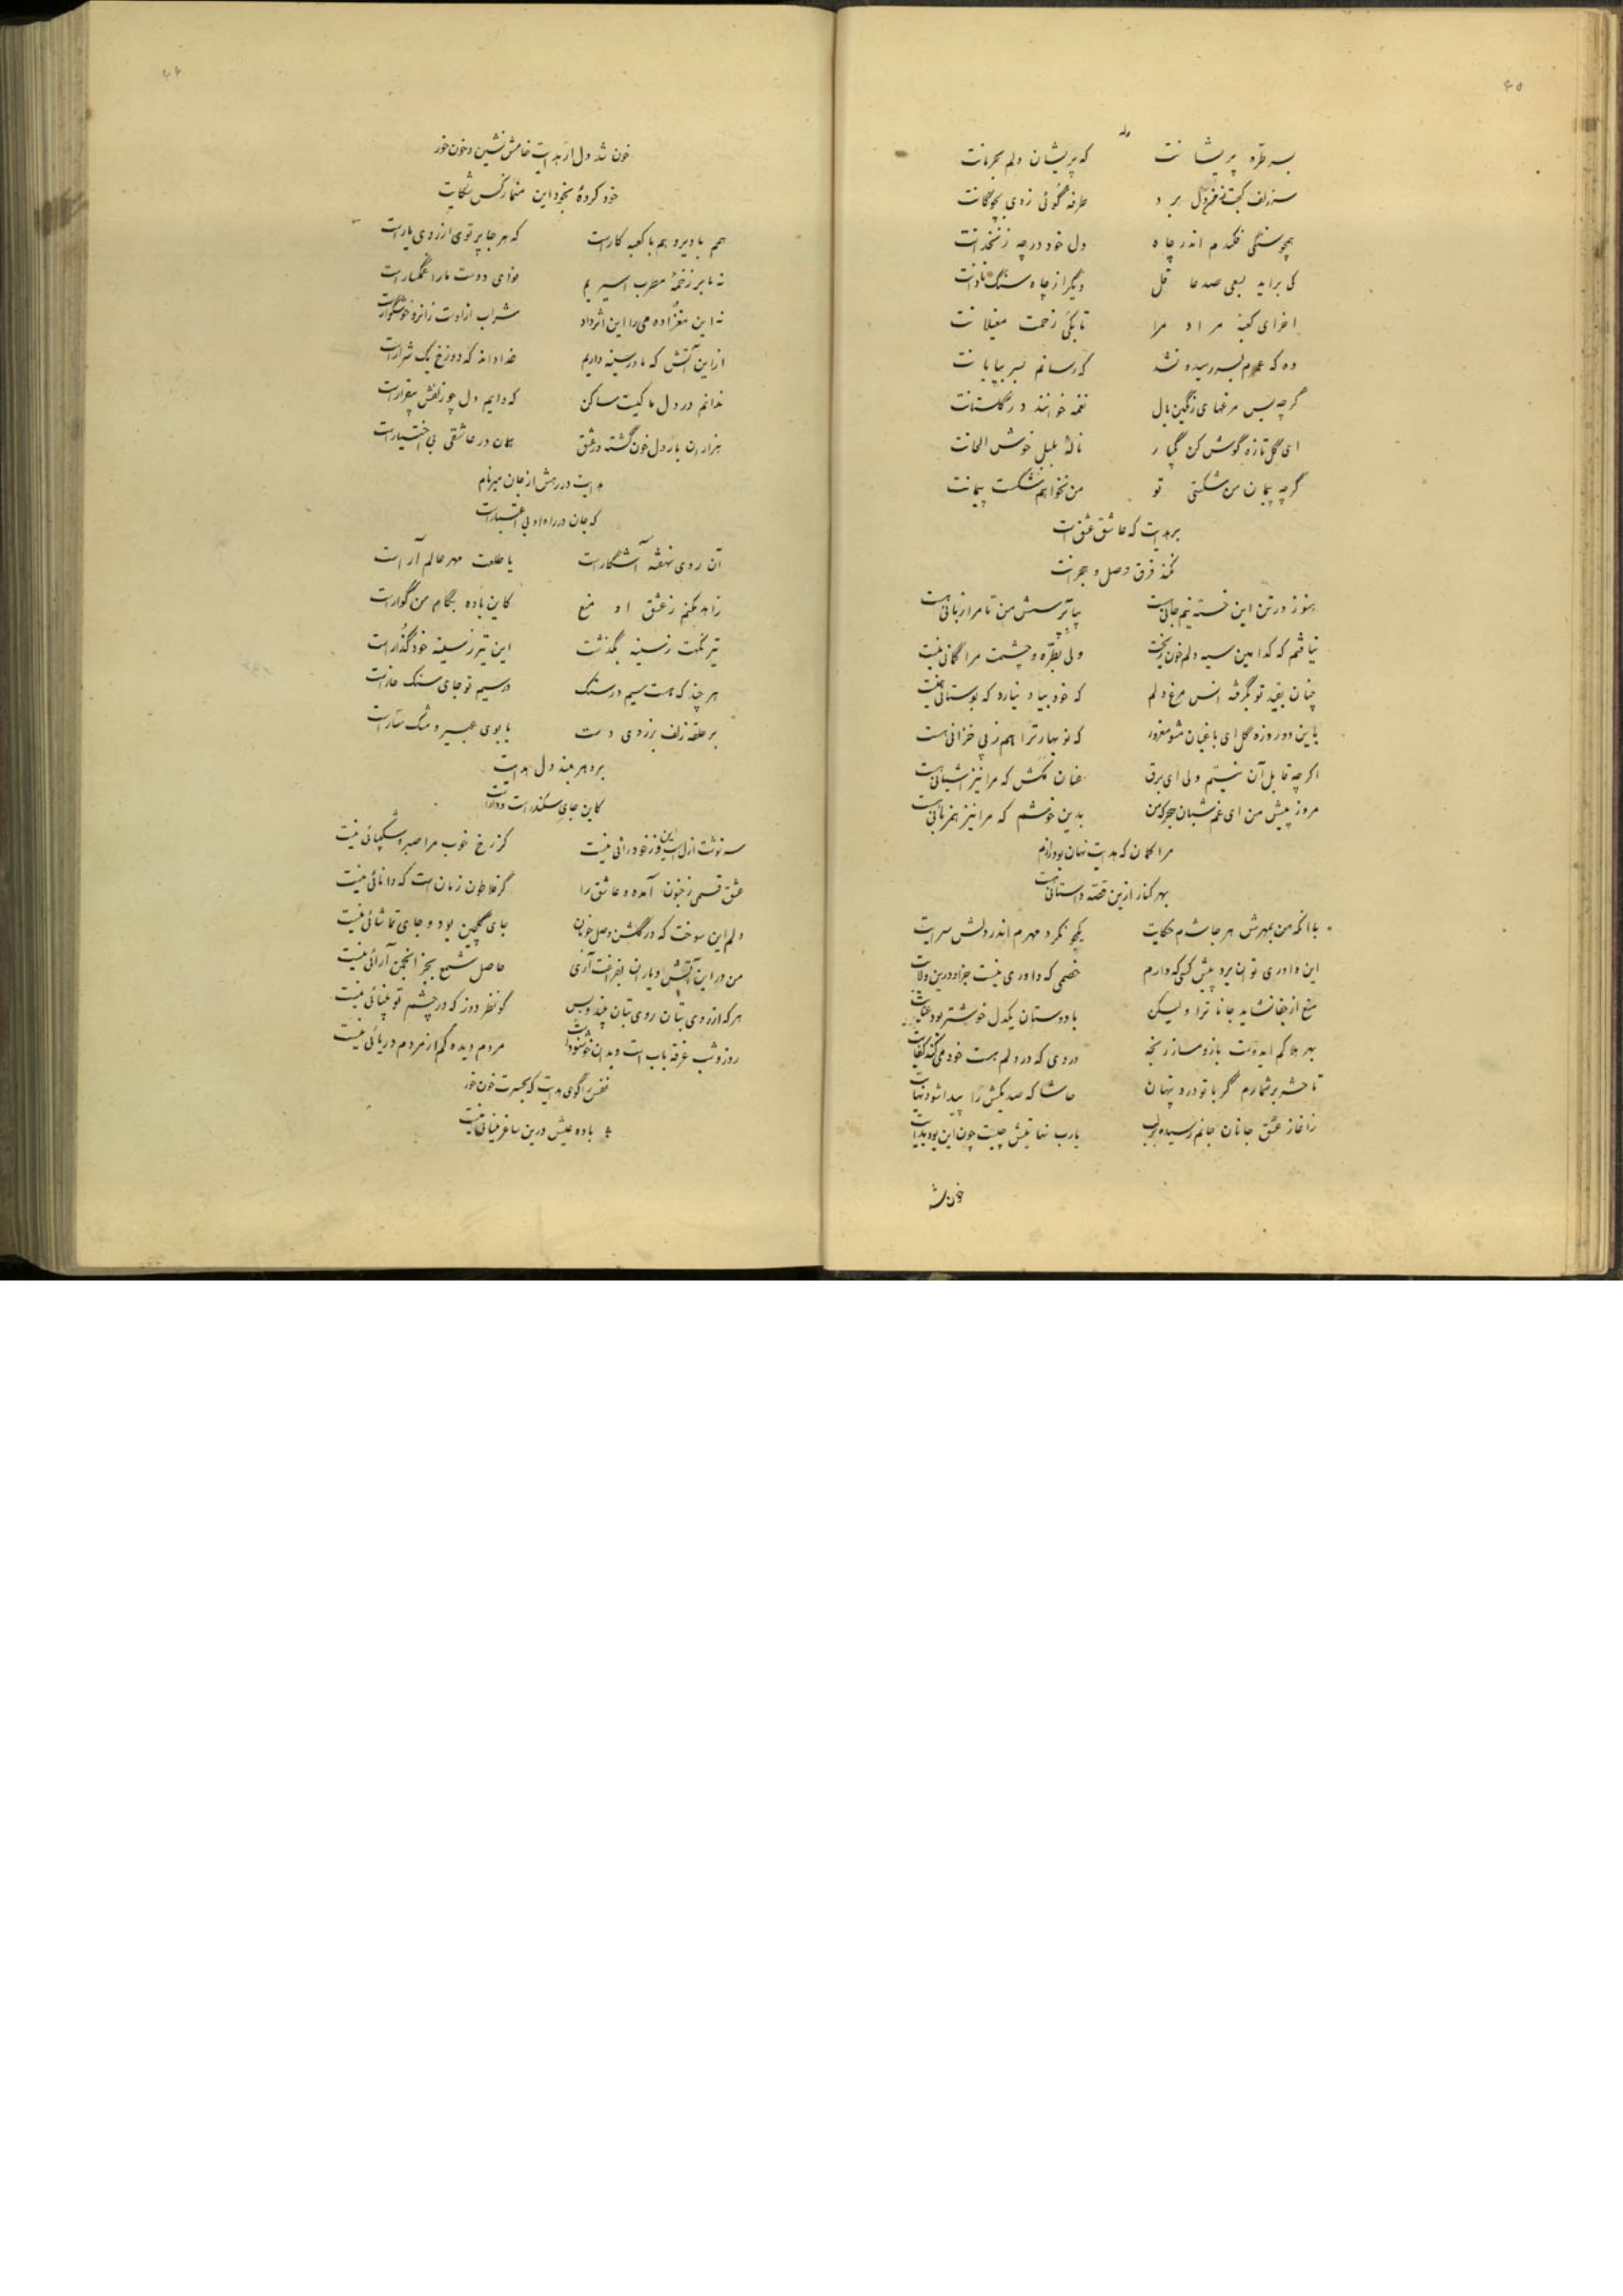 ۴۵
وله
بسر طره پریشانت
که پریشان دلم بحرمانت
سر زلف کجت دل برد
طرفه گوئی زدی بچوگانت
همچو سنگی فکندم اندر چاه
دل خود در چه زنخدانت
کی براید بسعی صد عاقل
دیگر از چاه سنگ نادانت
اخر ای کعبه مراد مرا
تا بکی زحمت مغیلانت
وه که عمرم بسر رسیده نشد
که رسانم بسر بیابانت
گرچه بس مرغهای رنگین بال
نغمه خوانند در گلستانت
ای گل تازه گوش کن یکبار
ناله بلبل خوش الحانت
گرچه پیمان من شکستی تو
من نخواهم شکست پیمانت
بر هدایت که عاشق عشق است
نکند فرق وصل و هجرانت
هنوز در تن این خسته نیم جانی هست
بیا بپرسش من تا مرا زبانی هست
نیافتم که کدامین سیه دلم خون ریخت
ولی بطره و چشمت مرا گمانی نیست
چنان بقید تو بگرفته انس مرغ دلم
که خود بیاد نیارد که بوستانی هست
باین دو روزه گل ای باغبان مشو مغرور
که نوبهار ترا هم ز پی خزانی هست
اگرچه قابل آن نیستم ولی ای برق
عنان مکش که مرا نیز اشیانی هست
مرو ز پیش من ای غم شبان هجر که من
بدین خوشم که مرا نیز همزبانی هست
مرا گمان که هدایت نهان بود رازم
بهر کنار ازین قصه داستانی هست
با انکه من بمهرش هر جا شدم حکایت
یکجو نکرد مهرم اندر دلش سرایت
این داوری توان برد پیش کسی که دارم
خصمی که داوری نیست جز او درین ولایت
منع از جفا نشاید جانا ترا ولیکن
با دوستان یکدل خوشتر بود عنایت
بهر هلاکم ایدوست بازو مساز رنجه
دردی که در دلم هست خود میکند کفایت
تا حشر بر شمارم گر با تو درد پنهان
حاشا که صد یکش را پیدا شود نهایت
ز اغاز عشق جانان جانم رسیده بر لب
یارب نهایتش چیست چون این بود بدایت
خون شد
۴۶
خون شد دل از هدایت خامش نشین و خون خور
خود کرده بخود این منما ز کس شکایت
هم با دیر و هم با کعبه کار است
که هر جا پرتوی از روی یار است
نه ما بر زخمه مطرب اسیریم
نوای دوست ما را غمگسار است
نه این مغزاده می را این اثر داد
شراب از اوست زانرو خوشگوار است
از این آتش که ما در سینه داریم
خدا داند که دوزخ یک شرار است
ندانم در دل ما کیست ساکن
که دایم دل چو زلفش بیقرار است
هزاران بار دل خون گشته در عشق
همان در عاشقی بی اختیار است
هدایت در رهش از جان میر نام
که جان در راه او بی اعتبار است
آن روی نهفته آشکار است
یا طلعت مهر عالم آراست
زاهد مکنم ز عشق او منع
کاین باده بکام من گواراست
تیر نگهت ز سینه بگذشت
این تیر ز سینه خود گذارا است
هر چند که هست سیم در سنگ
در سیم تو جای سنگ خارا است
بر حلقه زلف بر زدی دست
با بوی عبیر و مشک ساراست
برد مهر بند دل هدایت
کاین جای سکندر است و دارا است
سرنوشت ازل است این و ز خود رائی نیست
کز رخ خوب مرا صبر و شکیبائی نیست
عشق قسمی ز جنون آمده و عاشق را
گر فلاطون زمان است که دانائی نیست
دلم این سوخت که در گلشن وصل خوبان
جای گلچین بود و جای تماشائی نیست
من در این آتش و یاران بفراغت آری
حاصل شمع بجز انجمن آرائی نیست
هر که از روی بتان روی بتان بیند و بس
گو نظر دوز که در چشم تو بینائی نیست
روز و شب غرقه باب است و بدان خوشنود است
مردم دیده کم از مردم دریائی نیست
هدایت که بحسرت خون خور
باده عیش درین ساغر مینائی نیست